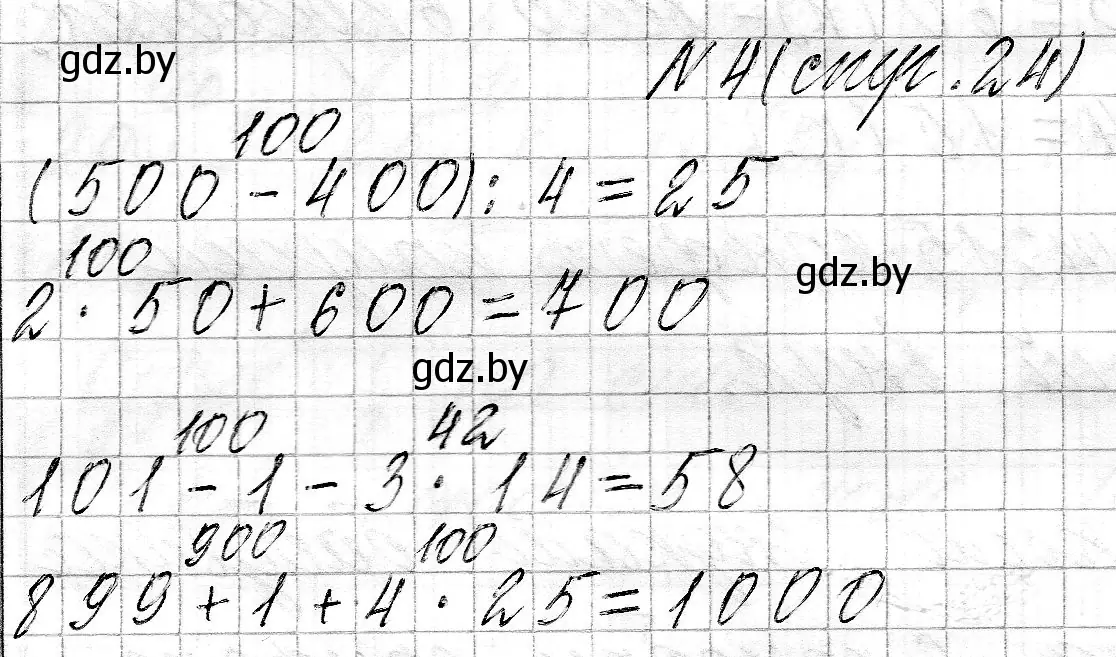 gdz.by
N 4 (стр. 24)
100
(500 - 400) : 4 = 25
100
gdz.by
2 · 50 + 600 = 700
gdz.by
100 42
101 - 1 - 3 · 14 = 58
900 100
899 + 1 + 4 · 25 = 1000